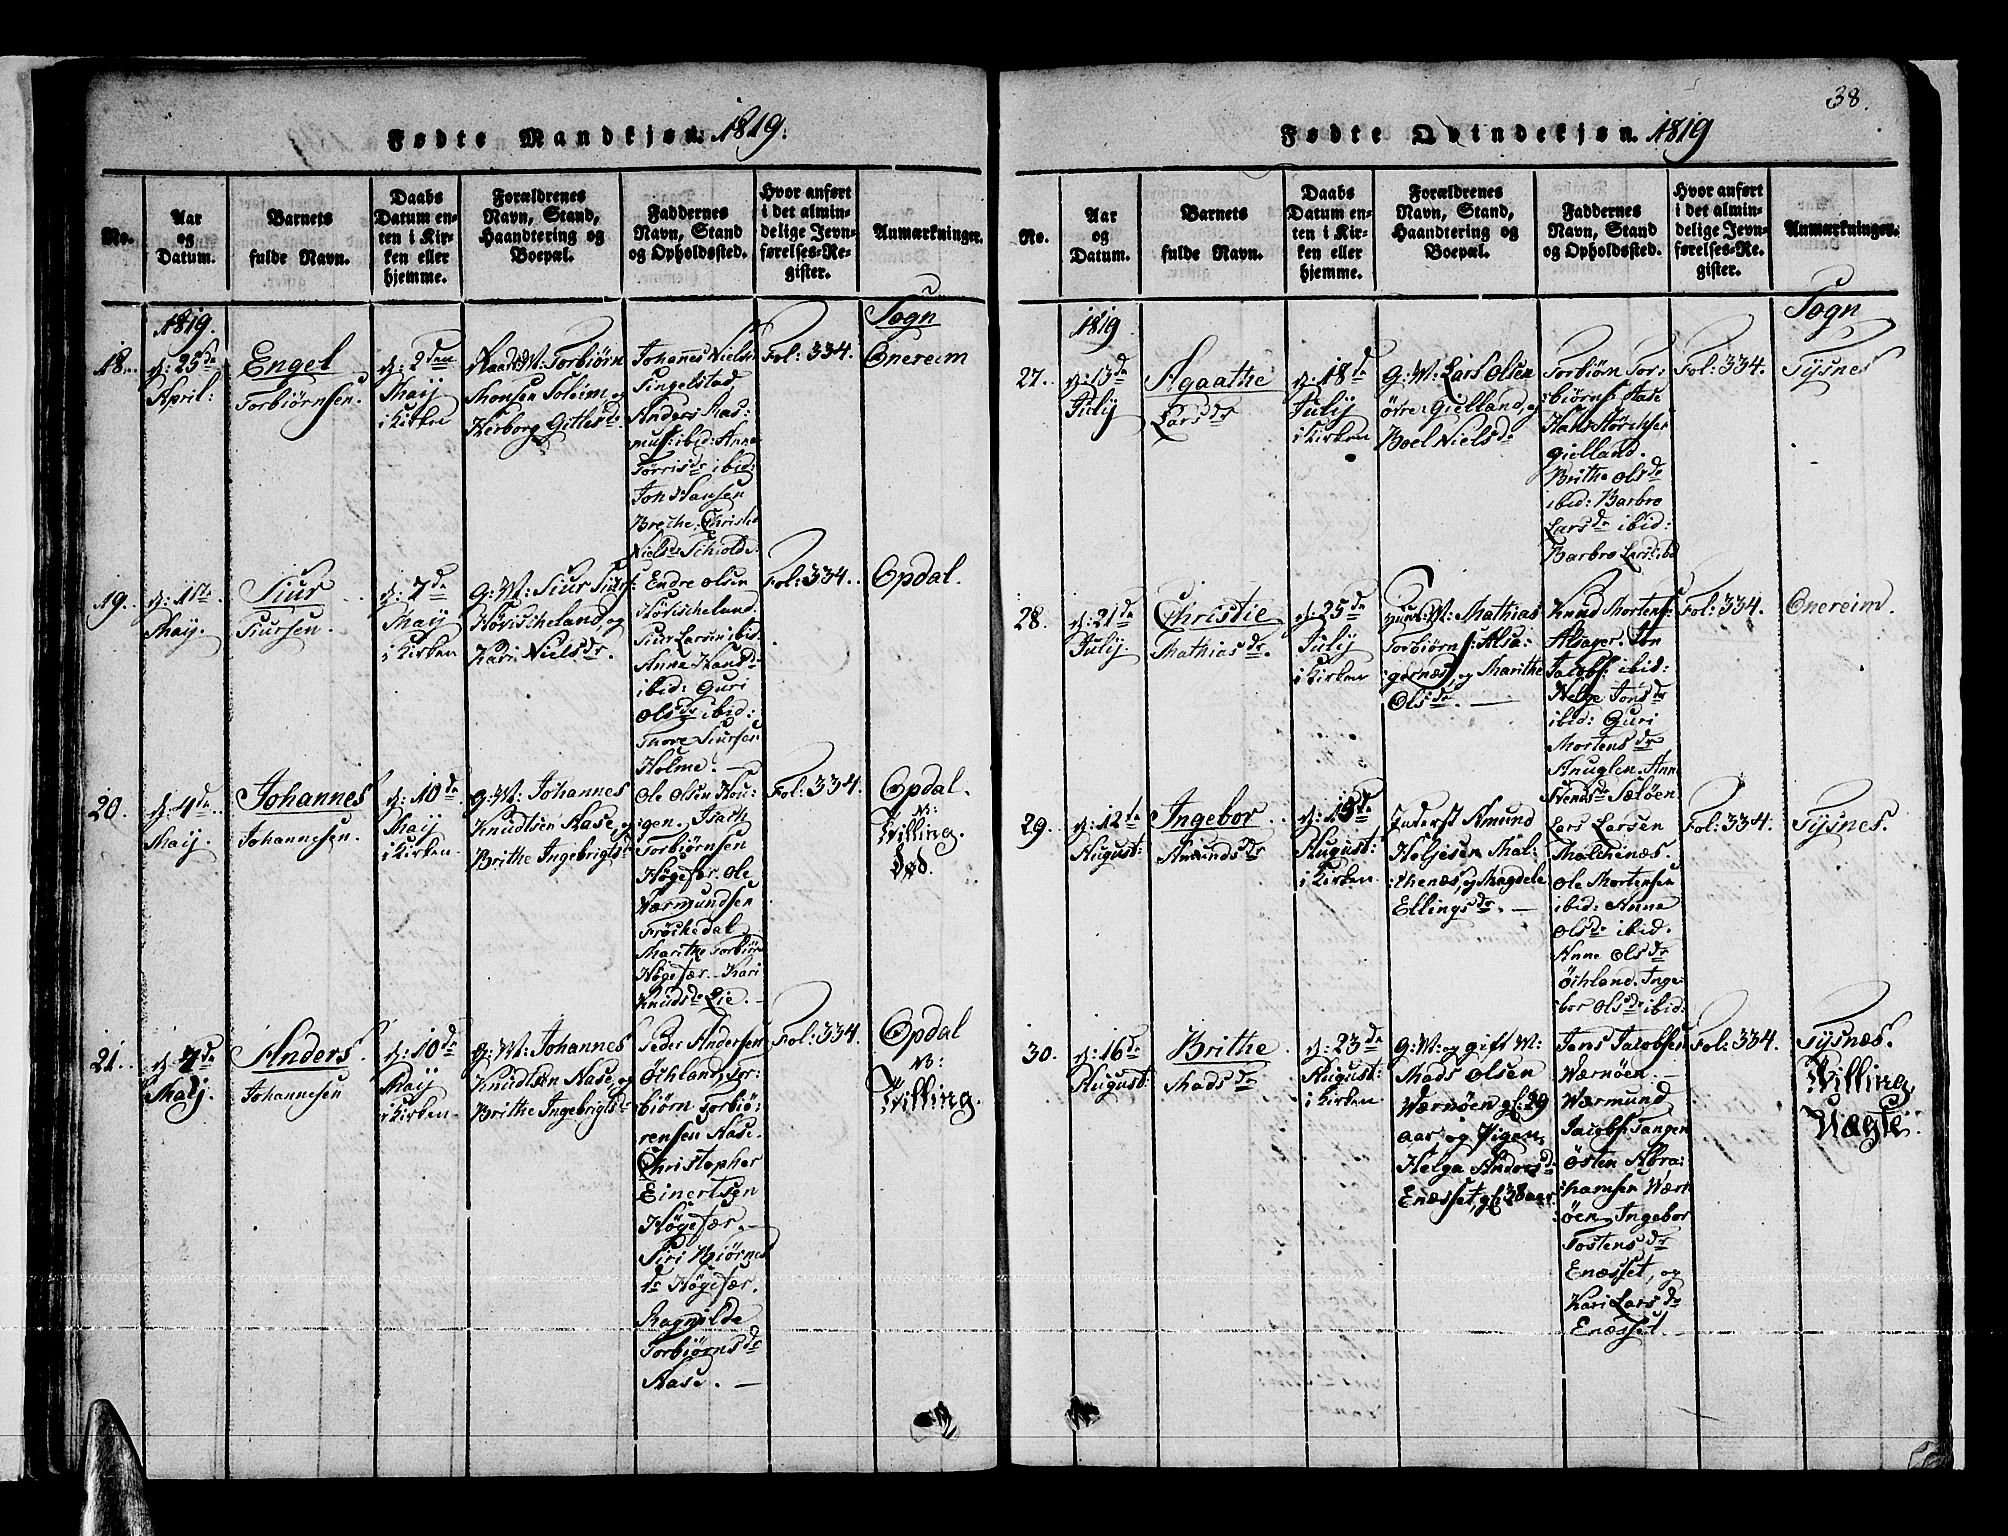 38.
Fødte Mandkjøn. 1819.
No.
Aar
og
Datum.
Barnets
fulde Navn.
Daabs
Datum en-
ten i Kir-
ken eller
hjemme.
Forældrenes
Navn, Stand,
Haandtering og
Boepæl.
Faddernes
Navn, Stand
og Opholdssted.
Hvor anført
i det almin-
delige Jevn-
førelses-Re-
gister.
Anmærkninger.
1819.
Sogn
18.
d: 25de
April:
Engel
Torbiörnsen.
d: 2den
Maij
i Kirken
Torbiörn
Monsen Soleim, og
Herborg Gitlesdr.
Johannes Nielsen
Singelstad,
Anders Ras-
mus: ibid: Anne
Törrisdr ibid:
Jon Hansen
Nielsdr
Fol: 334.
Onereim
19.
d: 1ste
Maij.
Siur
Siursen.
d: 7de
Maij
i Kirken
G: M: Siur Siurs:
Hövischeland, og
Kari Nielsdr.
Endre Olsen
Hövischeland.
Siur Larsen ibid.
Anne Hansd:
ibid: Guri
Olsdr ibid:
Thore Siursen
Holme. —
Fol: 334.
Opdal.
20.
d: 4de
Maij.
Johannes
Johannesen.
d: 10de
Maij
i Kirken
G: M: Johannes
Knudtsen Aase, og
Brithe Ingebrigtsdr
Ole Olsen Hou-
gen. Isach
Torbiörnsen
Högefær. Ole
Værmundsen
Fröchedal
Marithe Torbiörn
Högefær. Kari
Knudsdr Lie. —
Fol: 334.
Opdal.
N:
Tvilling.
Død.
21.
d: 4de
Maij.
Anders.
Johannesen
d: 10de
Maij
i Kirken
G: M: Johannes
Knudtsen Aase, og
Brithe Ingebrigtsdr
Peder Andersen
Öchland, Tor-
biörn Torbiö-
rensen Aase.
Christopher
Einertsen
Högefær. —
Siri Biörnes
dr Högefær.
Ragnilde
Torbiörnsdr
Aase. —
Fol: 334.
Opdal
N:
Tvilling.
Fødte Qvindekjøn. 1819
No.
Aar
og
Datum.
Barnets
fulde Navn.
Daabs
Datum en-
ten i Kir-
ken eller
hjemme.
Forældrenes
Navn, Stand,
Haandtering og
Boepæl.
Faddernes
Navn, Stand
og Opholdssted.
Hvor anført
i det almin-
delige Jevn-
førelses-Re-
gister.
Anmærkninger.
1819
Sogn
27.
d: 13de
Julij
Agaathe
Larsdr
d: 18de
Julij
i Kirken
G: M: Lars Olsen
övre: Gielland, og
Boel Nielsdr
Torbiörn Tor-
biörns: Aase
Gielland.
Brithe Olsdr
ibid: Barbro
Larsdr ibid:
Barbro Lars: ibid
Fol: 334.
Tysnes
28.
d: 21de
Julij.
Christie
Mathiasdr.
d: 25de
Julij
i Kirken
Huus: M: Mathias
Torbiörns: Alsa-
gernæs, og Marithe
Olsdr. —
Knud Mortens:
Alsager. Jon
Jacobs: ibid:
Helge Jonsdr
ibid: Guri
Mortensdr
Anuglen. Anne
Svendsdr Sælöen
Fol: 334.
Onereim.
29.
d: 12te
August:
Ingebor
Amundsdr
d: 15de
August:
i Kirken
Inderst Amund
Heljesen Mal-
chenæs, og Magdele
Ellingsdr. —
Lars Larsen
Malchenæs.
Ole Mortensen
ibid: Anne
Olsdr ibid.
Anne Olsdr
Öchland. Inge-
bor Olsdr ibid:
Fol: 334.
Tysnes.
30.
d: 16de
August:
Brithe
Madsdr
d: 23de
August:
i Kirken
G: M: og gift M:
Mads Olsen
Wærnöen gl: 29
aar og Pigen
Helga Andersdr
Enæsset, gl: 38 aar.
Jens Jacobsen
Wærnöen. —
Wærmund
Jacobs: Tangen
Östen Abra-
hamsen Wærn
öen. Ingebor
Tostensdr
Enæsset, og
Kari Larsdr
Enæsset. —
Fol: 334.
Tysnæs.
Tvilling
Uægte.